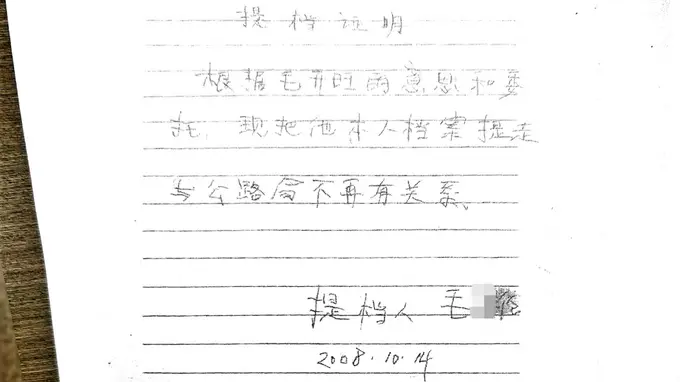 提档证明
根据毛开旺的意思和委
托,现把他本人档案提走
与公路局不再有关系、
提档人 毛
2008.10.14